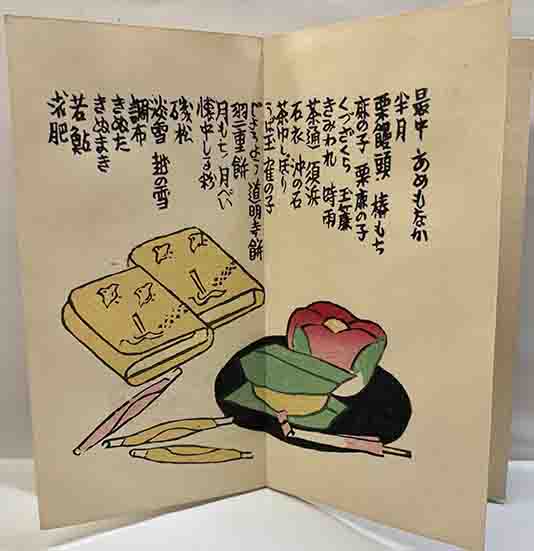 最中 あめもなか
半月
栗饅頭 椿もち
鹿の子 栗鹿の子
くづざくら 玉簾
きみわれ 時雨
茶通 須浜
石衣 沖の石
茶巾しぼり
うば玉 雀の子
じょうよう 道明寺餅
羽二重餅
月もち 月べい
懐中しる粉
磯松
淡雪 越の雪
調布
きぬた
きぬまき
若鮎
求肥